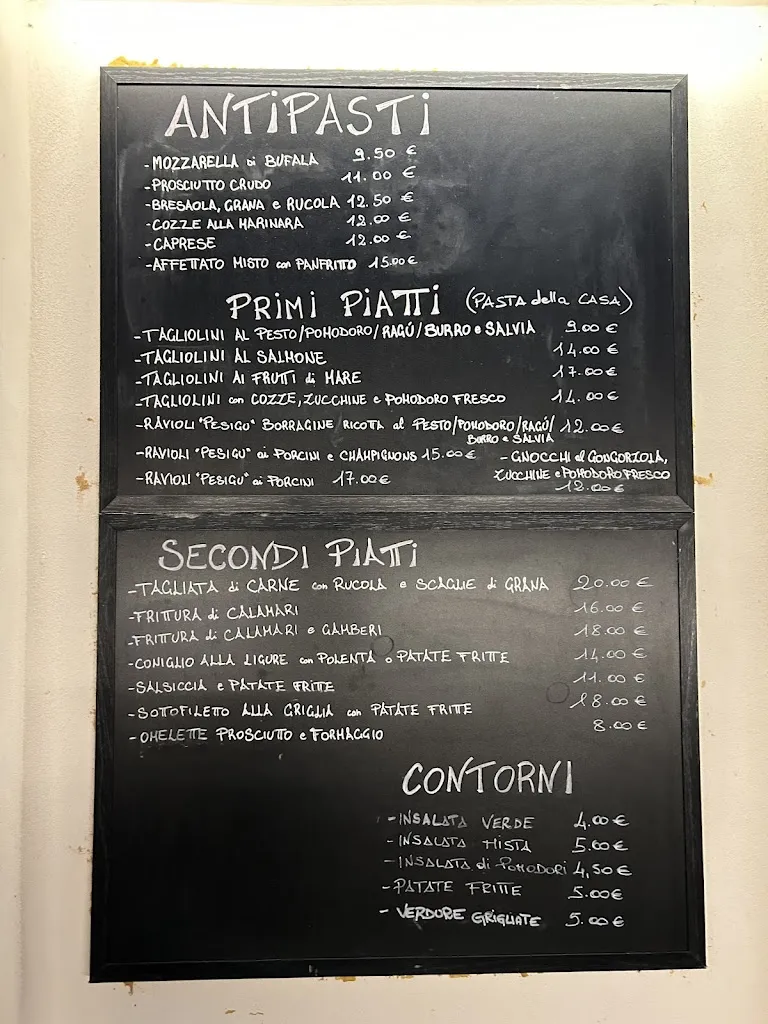 ANTiPASTi
-MOZZARELLA di BUFALA 9.50 €
-PROSCIUTTO CRUDO 11.00 €
-BRESAOLA, GRANA e RUCOLA 12.50 €
-COZZE ALLA MARINARA 12.00 €
-CAPRESE 12.00 €
-AFFETTATO MISTO con PANFRITTO 15.00€
PRIMI PIATTI (PASTA della CASA)
-TAGLIOLINI AL PESTO/POMODORO/RAGÚ/BURRO e SALVIA 9.00 €
-TAGLIOLINI AL SALMONE 14.00 €
-TAGLIOLINI AI FRUTTI di MARE 17.00 €
-TAGLIOLINI con COZZE, ZUCCHINE e POMODORO FRESCO 14.00 €
-RAVIOLI "PESIGU" BORRAGINE RICOTA al PESTO/POMODORO/RAGÚ/ 12.00 €
BURRO e SALVIA
-RAVIOLI "PESIGU" ai PORCINI e CHAMPIGNONS 15.00 €
-GNOCCHI al GONGORZOLA,
-RAVIOLI "PESIGU" ai PORCINI 17.00€
ZUCCHINE e POMODORO FRESCO
12.00 €
SECONDI PIATTI
-TAGLIATA di CARNE con RUCOLA e SCAGLIE di GRANA 20.00 €
-FRITTURA di CALAMARI 16.00 €
-FRITTURA di CALAMARI e GAMBERI 18.00 €
-CONIGLIO ALLA LIGURE con POLENTA o PATATE FRITTE 14.00 €
-SALSICCIA e PATATE FRITTE 11.00 €
-SOTTOFILETO ALLA GRIGLIA con PATATE FRITTE 18.00 €
-OMELETTE PROSCIUTTO e FORMAGGIO 8.00 €
CONTORNI
-INSALATA VERDE 4.00 €
-INSALATA MISTA 5.00 €
-INSALATA di POMODORI 4,50 €
-PATATE FRITTE 5.00€
- VERDURE GRIGLIATE 5.00 €